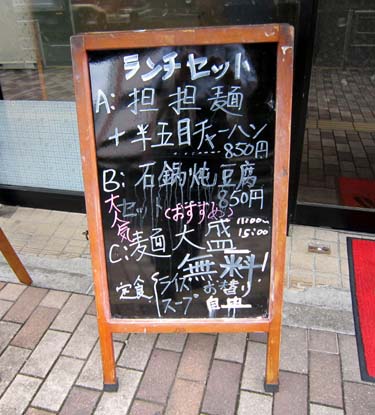 ランチセット
A: 担担麺
+半五目チャーハン
850円
B: 石鍋炖豆腐
大人気
セット(おすすめ) 850円
11:00〜15:00
C: 麺大盛
無料!
定食{ライス スープ お替り自由